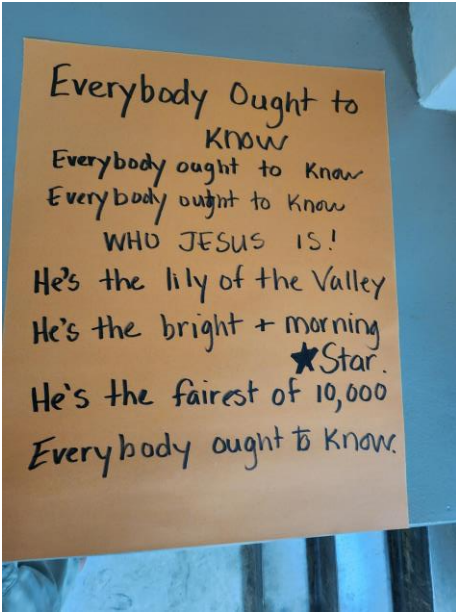 Everybody Ought to
Know
Everybody ought to Know
Everybody ought to Know
WHO JESUS IS!
He's the lily of the Valley
He's the bright + morning
★ Star.
He's the fairest of 10,000
Everybody ought to Know.